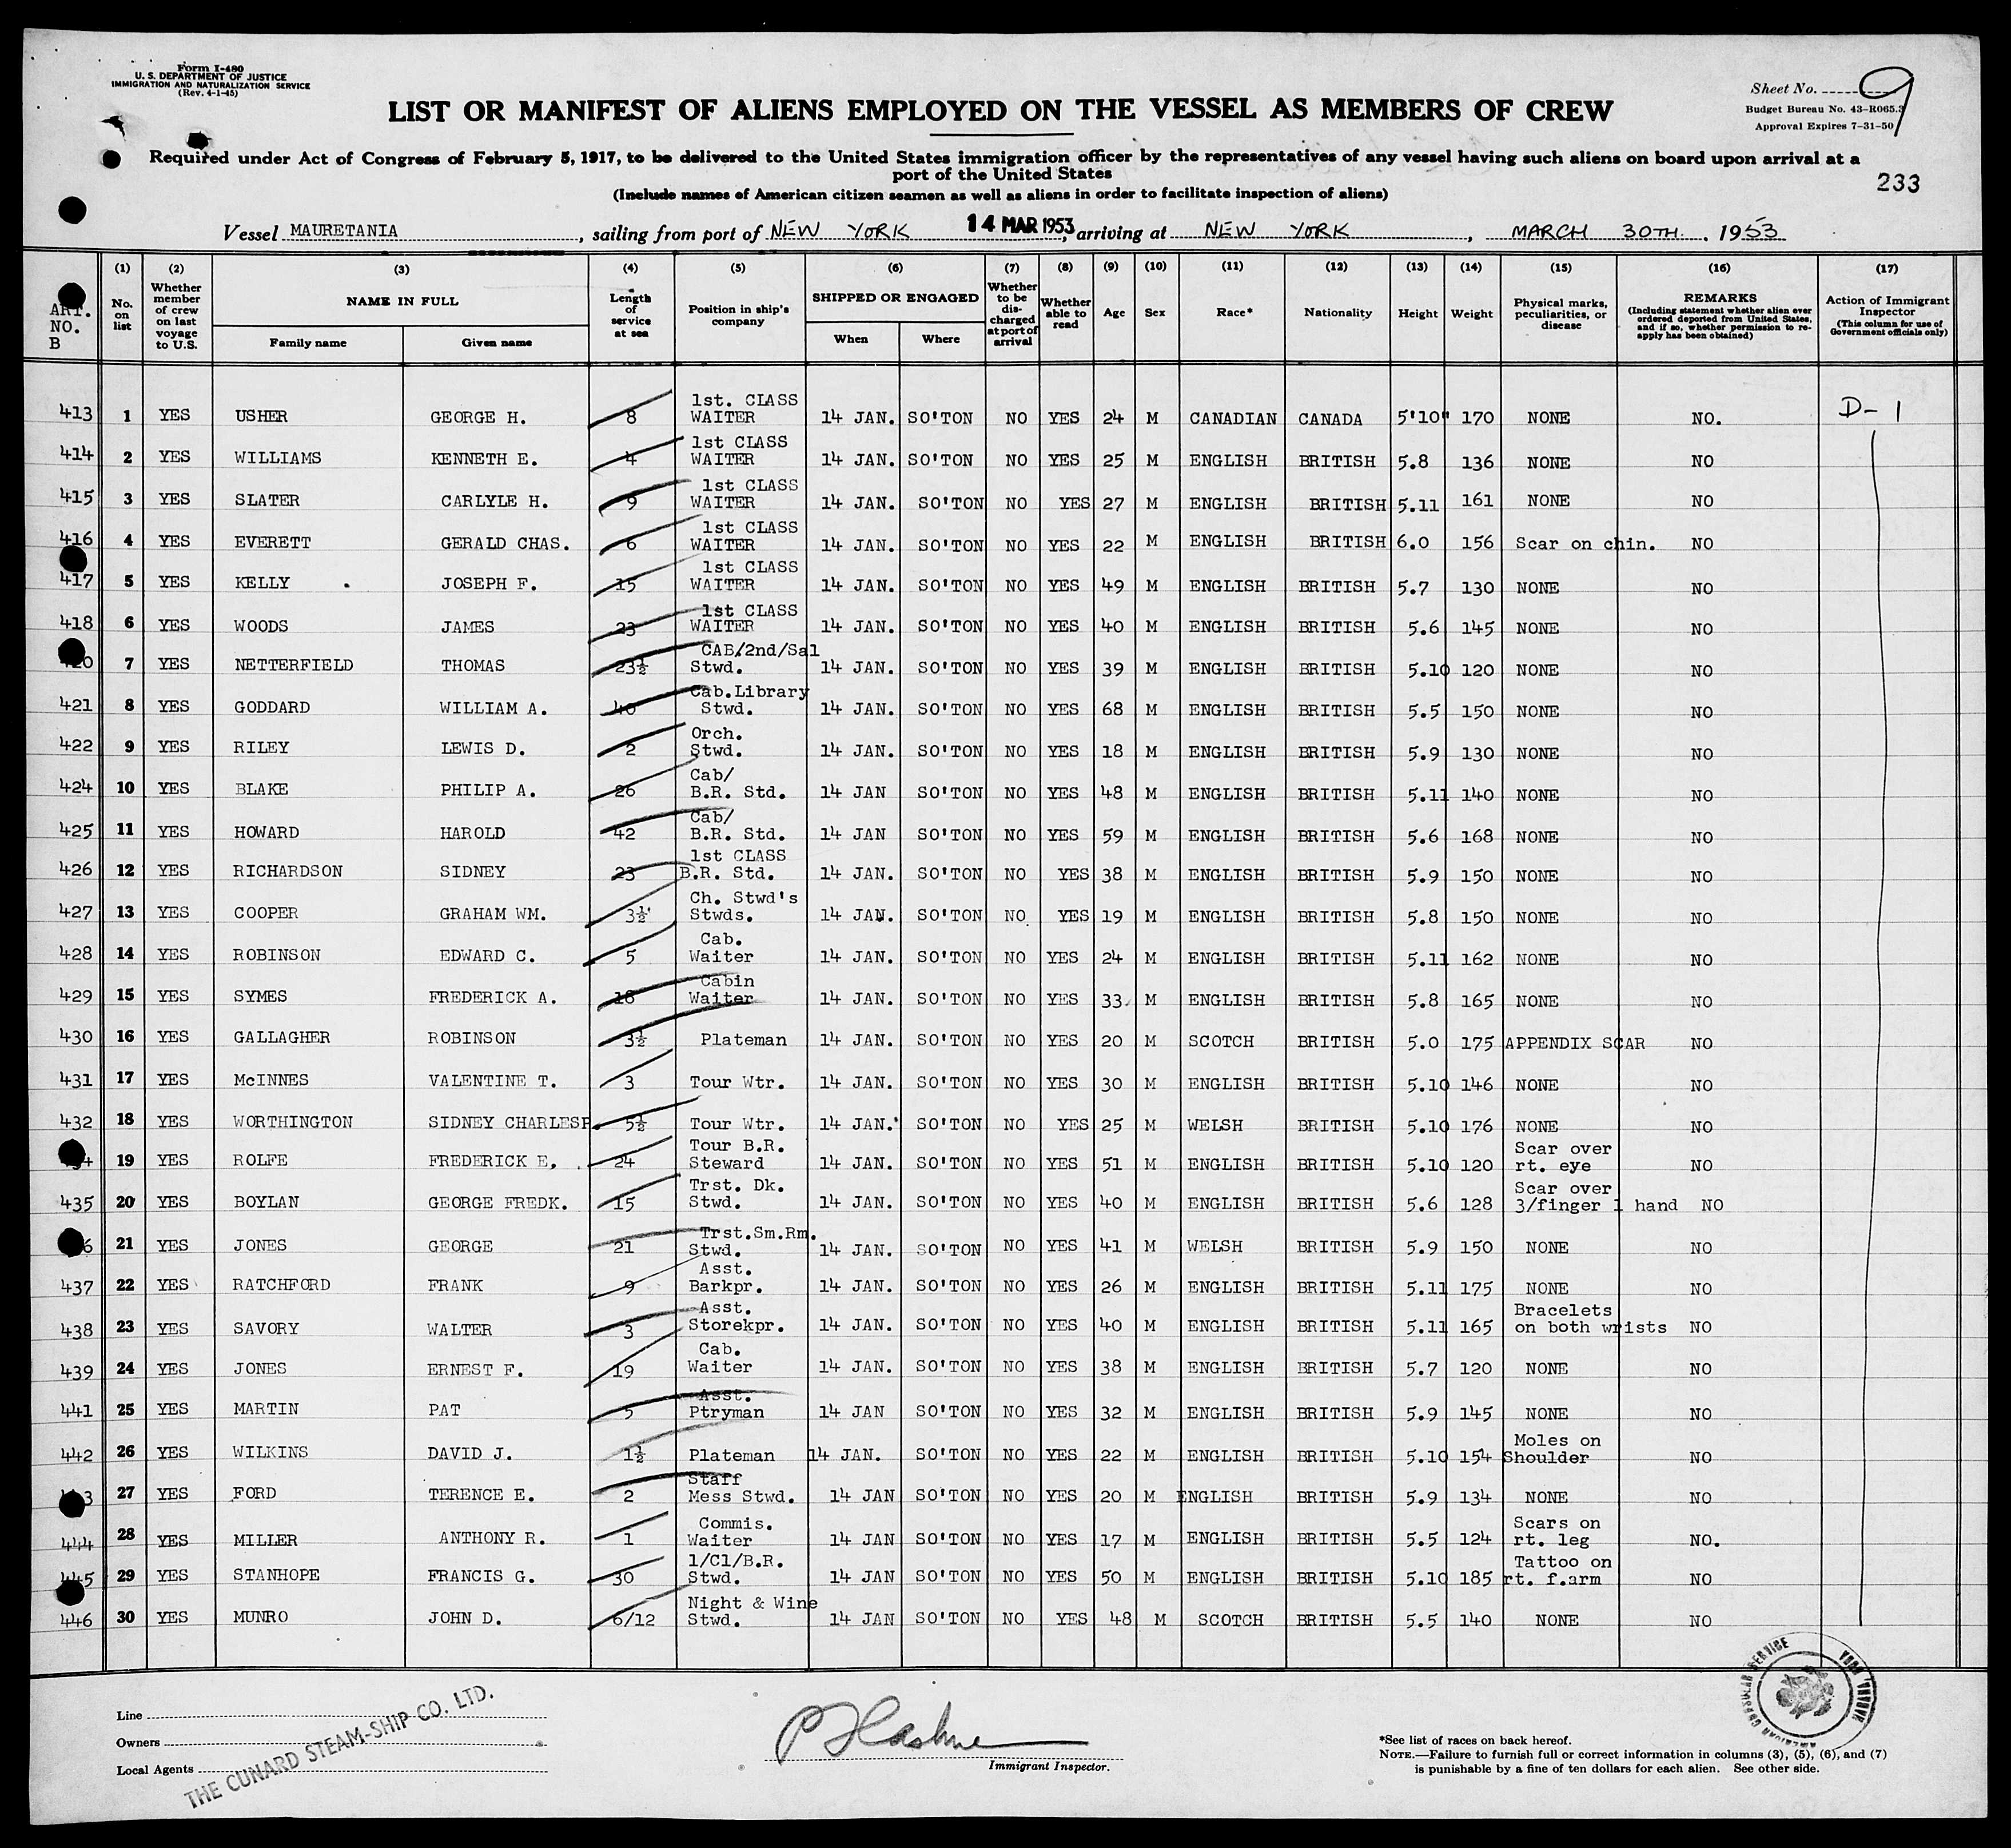 Form I-480
U. S. DEPARTMENT OF JUSTICE
IMMIGRATION AND NATURALIZATION SERVICE
(Rev. 4-1-45)
Sheet No. 9
Budget Bureau No. 43-R065.
Approval Expires 7-31-50
LIST OR MANIFEST OF ALIENS EMPLOYED ON THE VESSEL AS MEMBERS OF CREW
Required under Act of Congress of February 5, 1917, to be delivered to the United States immigration officer by the representatives of any vessel having such aliens on board upon arrival at a
port of the United States
(Include names of American citizen seamen as well as aliens in order to facilitate inspection of aliens)
233
Vessel MAURETANIA, sailing from port of NEW YORK 14 MAR 1953, arriving at NEW YORK, MARCH 30TH. 1953
ART. NO. B
(1) No. on list
(2) Whether member of crew on last voyage to U.S.
(3) NAME IN FULL Family name Given name
(4) Length of service at sea
(5) Position in ship's company
(6) SHIPPED OR ENGAGED When Where
(7) Whether to be discharged at port of arrival
(8) Whether able to read
(9) Age
(10) Sex
(11) Race*
(12) Nationality
(13) Height
(14) Weight
(15) Physical marks, peculiarities, or disease
(16) REMARKS (Including statement whether alien ever ordered deported from United States, and if so, whether permission to reapply has been obtained)
(17) Action of Immigrant Inspector (This column for use of Government officials only)
413 1 YES USHER GEORGE H. 8 1st. CLASS WAITER 14 JAN. SO'TON NO YES 24 M CANADIAN CANADA 5'10" 170 NONE NO. D- 1
414 2 YES WILLIAMS KENNETH E. 4 1st CLASS WAITER 14 JAN. SO'TON NO YES 25 M ENGLISH BRITISH 5.8 136 NONE NO
415 3 YES SLATER CARLYLE H. 9 1st CLASS WAITER 14 JAN. SO'TON NO YES 27 M ENGLISH BRITISH 5.11 161 NONE NO
416 4 YES EVERETT GERALD CHAS. 6 1st CLASS WAITER 14 JAN. SO'TON NO YES 22 M ENGLISH BRITISH 6.0 156 Scar on chin. NO
417 5 YES KELLY JOSEPH F. 15 1st CLASS WAITER 14 JAN. SO'TON NO YES 49 M ENGLISH BRITISH 5.7 130 NONE NO
418 6 YES WOODS JAMES 23 1st CLASS WAITER 14 JAN. SO'TON NO YES 40 M ENGLISH BRITISH 5.6 145 NONE NO
7 YES NETTERFIELD THOMAS 23½ CAB/2nd/Sal Stwd. 14 JAN. SO'TON NO YES 39 M ENGLISH BRITISH 5.10 120 NONE NO
421 8 YES GODDARD WILLIAM A. 40 Cab.Library Stwd. 14 JAN. SO'TON NO YES 68 M ENGLISH BRITISH 5.5 150 NONE NO
422 9 YES RILEY LEWIS D. 2 Orch. Stwd. 14 JAN. SO'TON NO YES 18 M ENGLISH BRITISH 5.9 130 NONE NO
424 10 YES BLAKE PHILIP A. 26 Cab/ B.R. Std. 14 JAN SO'TON NO YES 48 M ENGLISH BRITISH 5.11 140 NONE NO
425 11 YES HOWARD HAROLD 42 Cab/ B.R. Std. 14 JAN SO'TON NO YES 59 M ENGLISH BRITISH 5.6 168 NONE NO
426 12 YES RICHARDSON SIDNEY 23 1st CLASS B.R. Std. 14 JAN. SO'TON NO YES 38 M ENGLISH BRITISH 5.9 150 NONE NO
427 13 YES COOPER GRAHAM WM. 3½ Ch. Stwd's Stwds. 14 JAN. SO'TON NO YES 19 M ENGLISH BRITISH 5.8 150 NONE NO
428 14 YES ROBINSON EDWARD C. 5 Cab. Waiter 14 JAN. SO'TON NO YES 24 M ENGLISH BRITISH 5.11 162 NONE NO
429 15 YES SYMES FREDERICK A. 18 Cabin Waiter 14 JAN. SO'TON NO YES 33 M ENGLISH BRITISH 5.8 165 NONE NO
430 16 YES GALLAGHER ROBINSON 3½ Plateman 14 JAN. SO'TON NO YES 20 M SCOTCH BRITISH 5.0 175 APPENDIX SCAR NO
431 17 YES McINNES VALENTINE T. 3 Tour Wtr. 14 JAN. SO'TON NO YES 30 M ENGLISH BRITISH 5.10 146 NONE NO
432 18 YES WORTHINGTON SIDNEY CHARLESP. 5½ Tour Wtr. 14 JAN. SO'TON NO YES 25 M WELSH BRITISH 5.10 176 NONE NO
19 YES ROLFE FREDERICK E. 24 Tour B.R. Steward 14 JAN. SO'TON NO YES 51 M ENGLISH BRITISH 5.10 120 Scar over rt. eye NO
435 20 YES BOYLAN GEORGE FREDK. 15 Trst. Dk. Stwd. 14 JAN. SO'TON NO YES 40 M ENGLISH BRITISH 5.6 128 Scar over 3/finger l hand NO
21 YES JONES GEORGE 21 Trst.Sm.Rm. Stwd. 14 JAN. SO'TON NO YES 41 M WELSH BRITISH 5.9 150 NONE NO
437 22 YES RATCHFORD FRANK 9 Asst. Barkpr. 14 JAN. SO'TON NO YES 26 M ENGLISH BRITISH 5.11 175 NONE NO
438 23 YES SAVORY WALTER 3 Asst. Storekpr. 14 JAN. SO'TON NO YES 40 M ENGLISH BRITISH 5.11 165 Bracelets on both wrists NO
439 24 YES JONES ERNEST F. 19 Cab. Waiter 14 JAN. SO'TON NO YES 38 M ENGLISH BRITISH 5.7 120 NONE NO
441 25 YES MARTIN PAT 5 Asst. Ptryman 14 JAN SO'TON NO YES 32 M ENGLISH BRITISH 5.9 145 NONE NO
442 26 YES WILKINS DAVID J. 1½ Plateman 14 JAN. SO'TON NO YES 22 M ENGLISH BRITISH 5.10 154 Moles on Shoulder NO
27 YES FORD TERENCE E. 2 Staff Mess Stwd. 14 JAN SO'TON NO YES 20 M ENGLISH BRITISH 5.9 134 NONE NO
444 28 YES MILLER ANTHONY R. 1 Commis. Waiter 14 JAN SO'TON NO YES 17 M ENGLISH BRITISH 5.5 124 Scars on rt. leg NO.
445 29 YES STANHOPE FRANCIS G. 30 1/Cl/B.R. Stwd. 14 JAN SO'TON NO YES 50 M ENGLISH BRITISH 5.10 185 Tattoo on rt. f.arm NO
446 30 YES MUNRO JOHN D. 6/12 Night & Wine Stwd. 14 JAN SO'TON NO YES 48 M SCOTCH BRITISH 5.5 140 NONE NO
Line
Owners
Local Agents
THE CUNARD STEAM-SHIP CO. LTD.
Immigrant Inspector.
AMERICAN CONSULAR SERVICE
HABANA, CUBA
*See list of races on back hereof.
NOTE.—Failure to furnish full or correct information in columns (3), (5), (6), and (7)
is punishable by a fine of ten dollars for each alien. See other side.